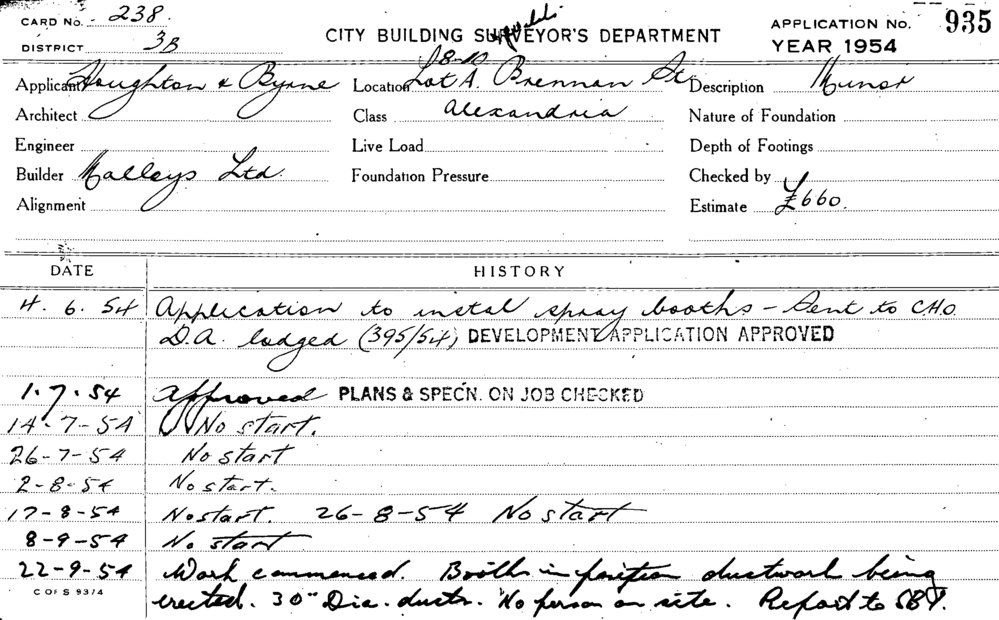 CARD No. 238.
DISTRICT 3B
CITY BUILDING SURVEYOR'S DEPARTMENT
APPLICATION No. 935
YEAR 1954
Applicant Houghton & Byrne
Location Lot A. 8-10 Brennan St
Description Minor
Architect
Class Alexandria
Nature of Foundation
Engineer
Live Load
Depth of Footings
Builder Malleys Ltd.
Foundation Pressure
Checked by
Alignment
Estimate £660.
DATE HISTORY
4. 6. 54 Application to instal spray booths – Sent to C.H.O.
D.A. lodged (395/54) DEVELOPMENT APPLICATION APPROVED
1.7.54 Approved PLANS & SPEC'N. ON JOB CHECKED
14-7-54 No start.
26-7-54 No start
2-8-54 No start.
17-8-54 No start. 26-8-54 No start
8-9-54 No start
22-9-54 Work commenced. Booths in position ductwork being
C OF S 93/4
erected. 30" Dia. ducts. No person on site. Report to